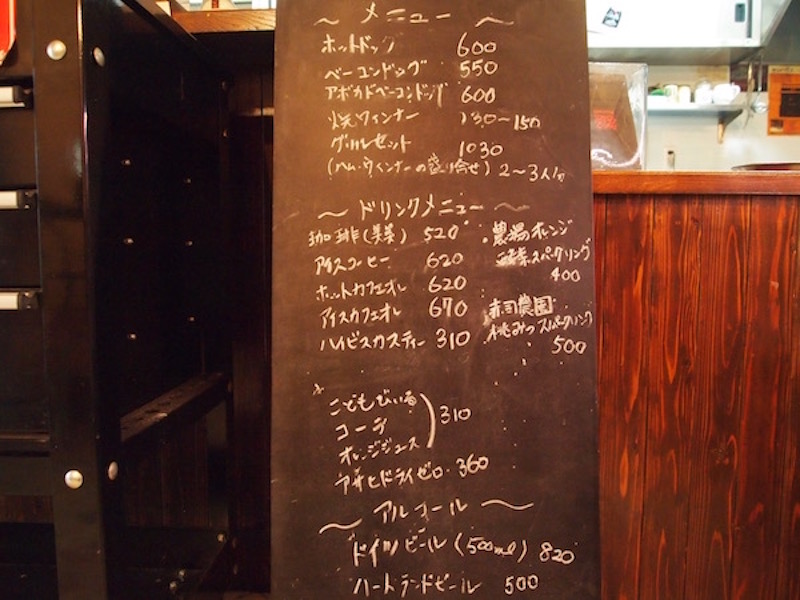 〜 メニュー 〜
ホットドック 600
ベーコンドッグ 550
アボカドベーコンドッグ 600
焼ウィンナー 130〜150
グリルセット 1030
(ハム・ウィンナーの盛り合せ) 2〜3人分
〜 ドリンクメニュー 〜
珈琲(美美) 520
アイスコーヒー 620
ホットカフェオレ 620
アイスカフェオレ 670
ハイビスカスティー 310
農場のオレンジ
スパークリング
400
赤司農園
桃みつスパークリング
500
こどもびいる
コーラ
オレンジジュース
310
アサヒドライゼロ 360
〜 アルコール 〜
ドイツビール (500ml) 820
ハートランドビール 500